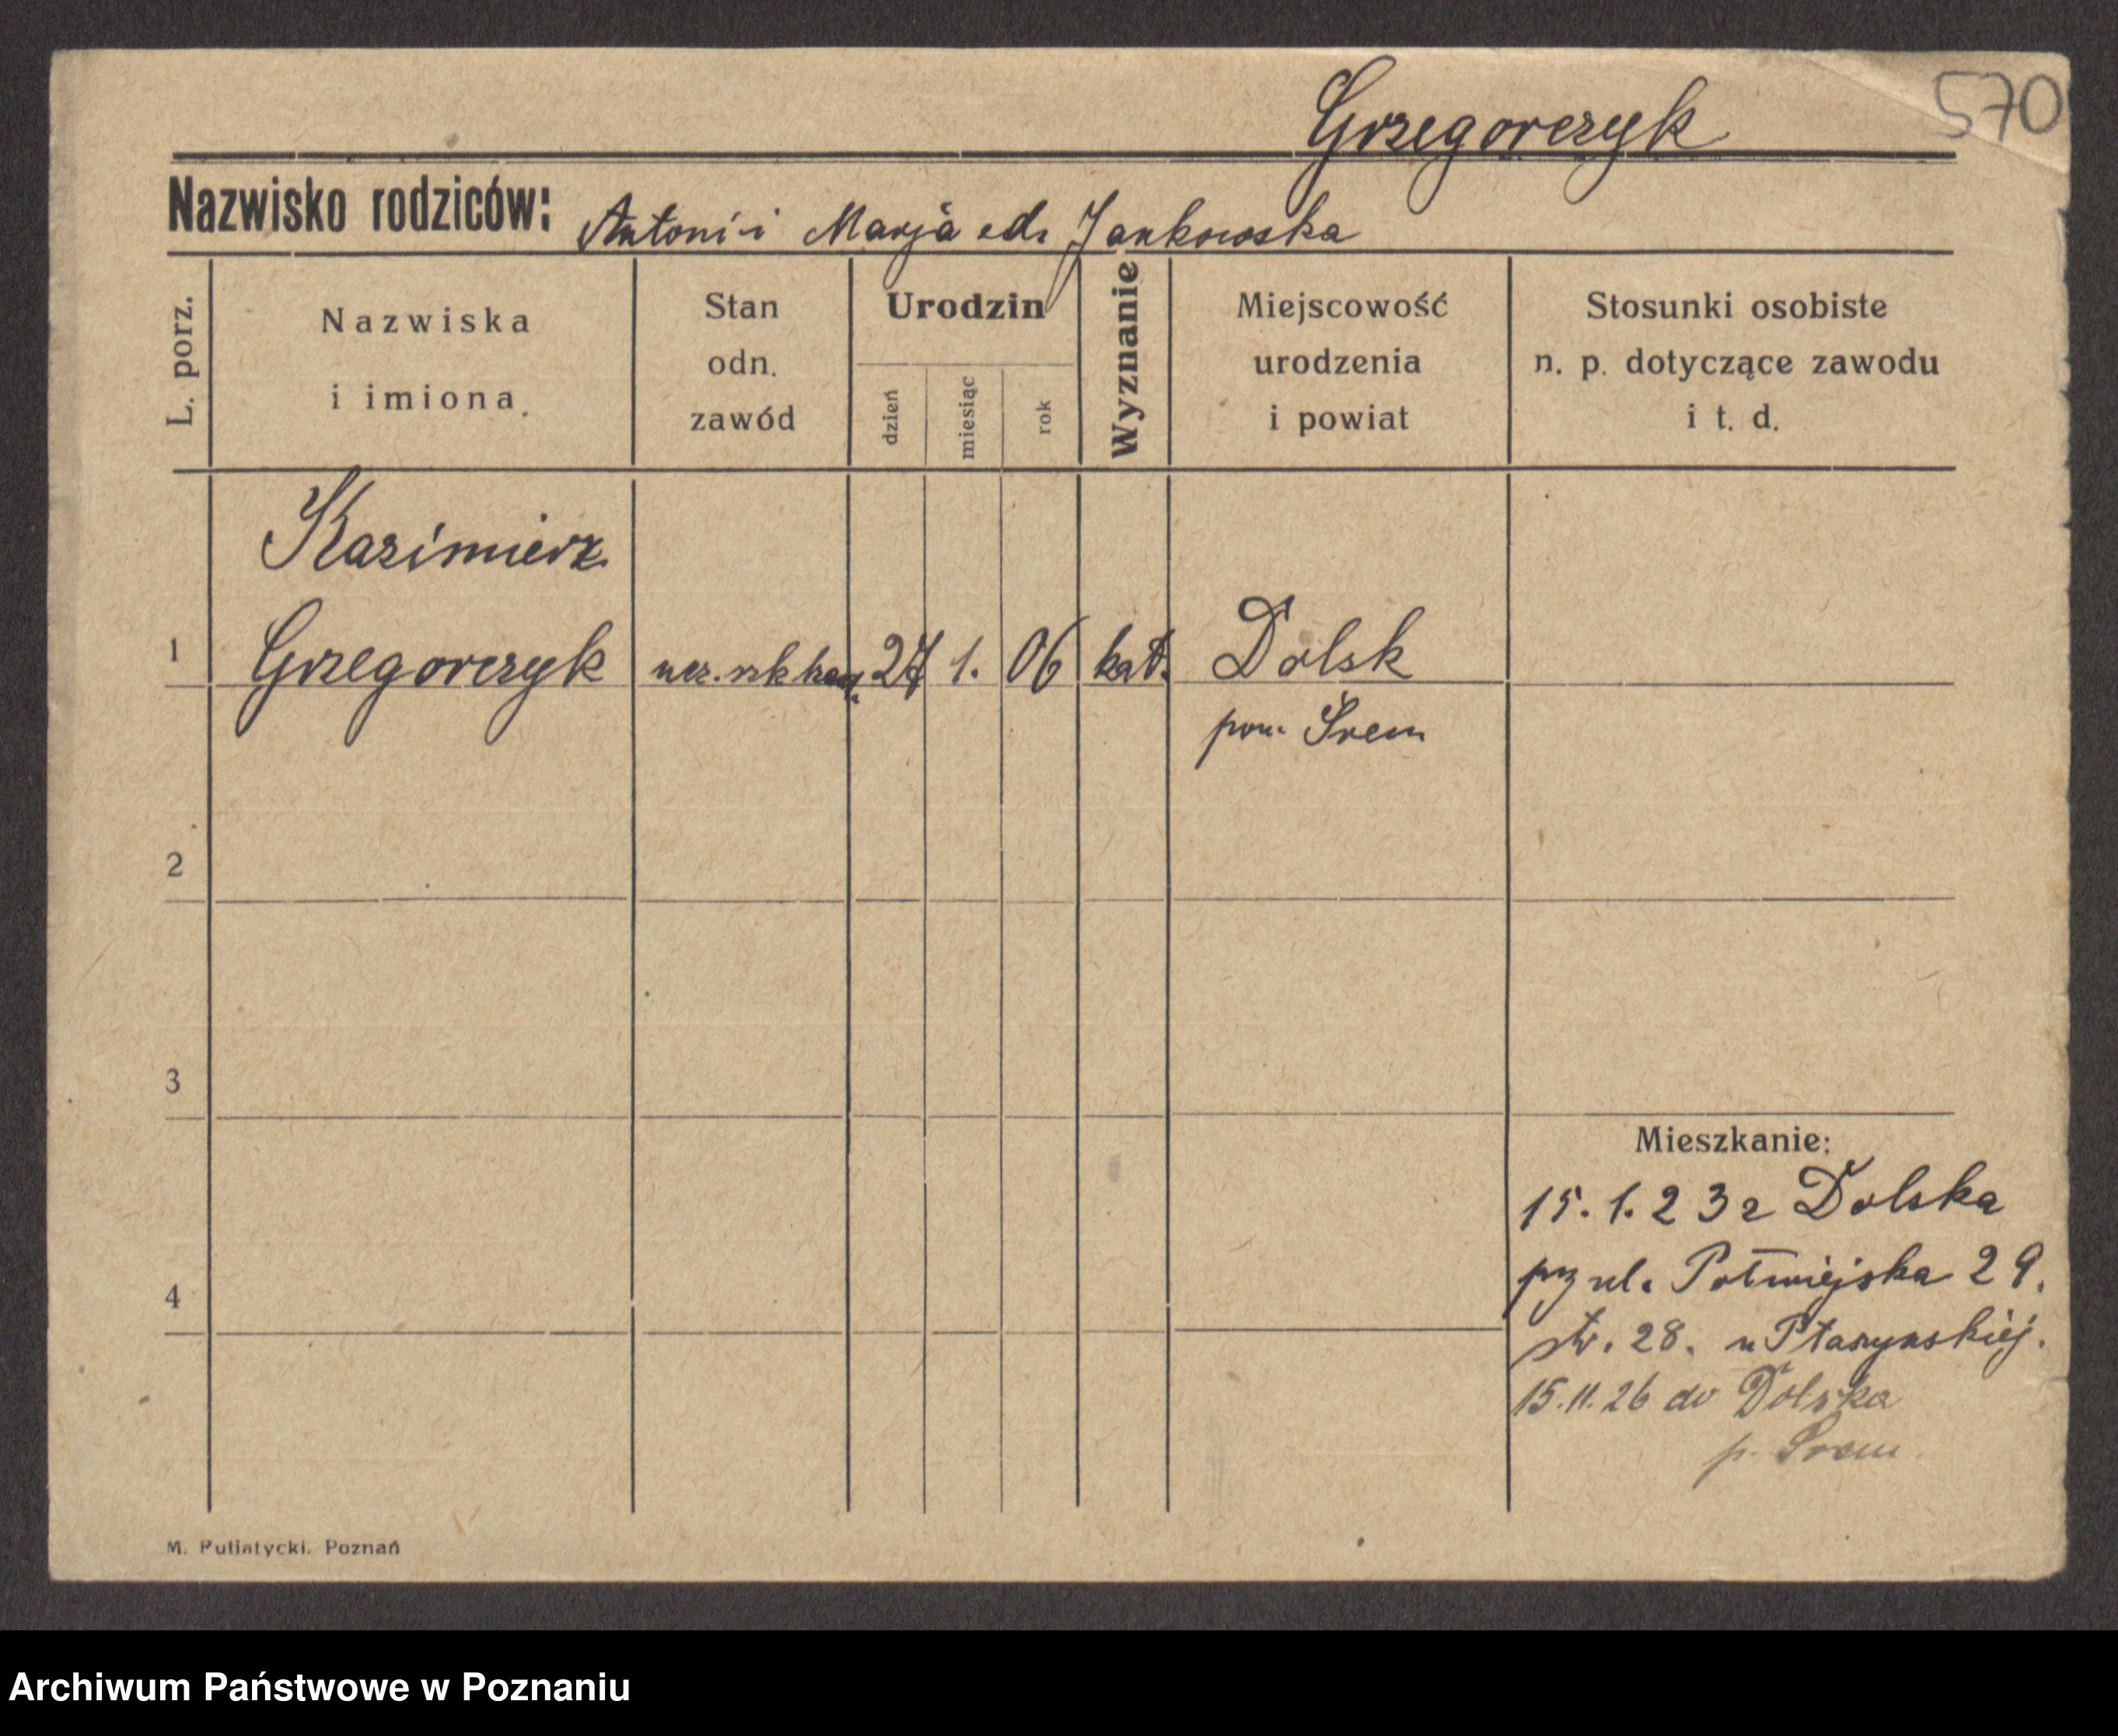 570
Grzegorczyk
Nazwisko rodziców: Antoni i Marja Jankowska
L. porz.
Nazwiska
i imiona.
Stan
odn.
zawód
Urodzin
dzień
miesiąc
rok
Wyznanie
Miejscowość
urodzenia
i powiat
Stosunki osobiste
n. p. dotyczące zawodu
i t. d.
Kazimierz
1 Grzegorczyk ucz. szk 27 1. 06 kat. Dolsk
pow. Śrem
2
3
4
Mieszkanie:
15. 1. 23 z Dolska
przy ul. Półwiejska 29.
str. 28. u Ptaszyńskiej.
15.11.26 do Dolska
p. Śrem
M. Putiatycki. Poznań
Archiwum Państwowe w Poznaniu